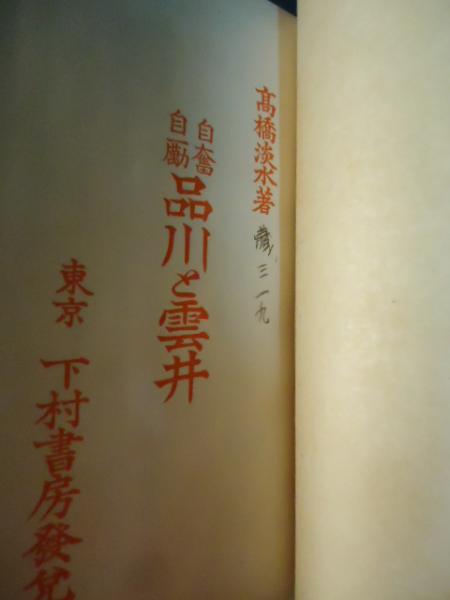 高橋淡水著
三一九
自奮
自勵
品川と雲井
東京 下村書房發兌